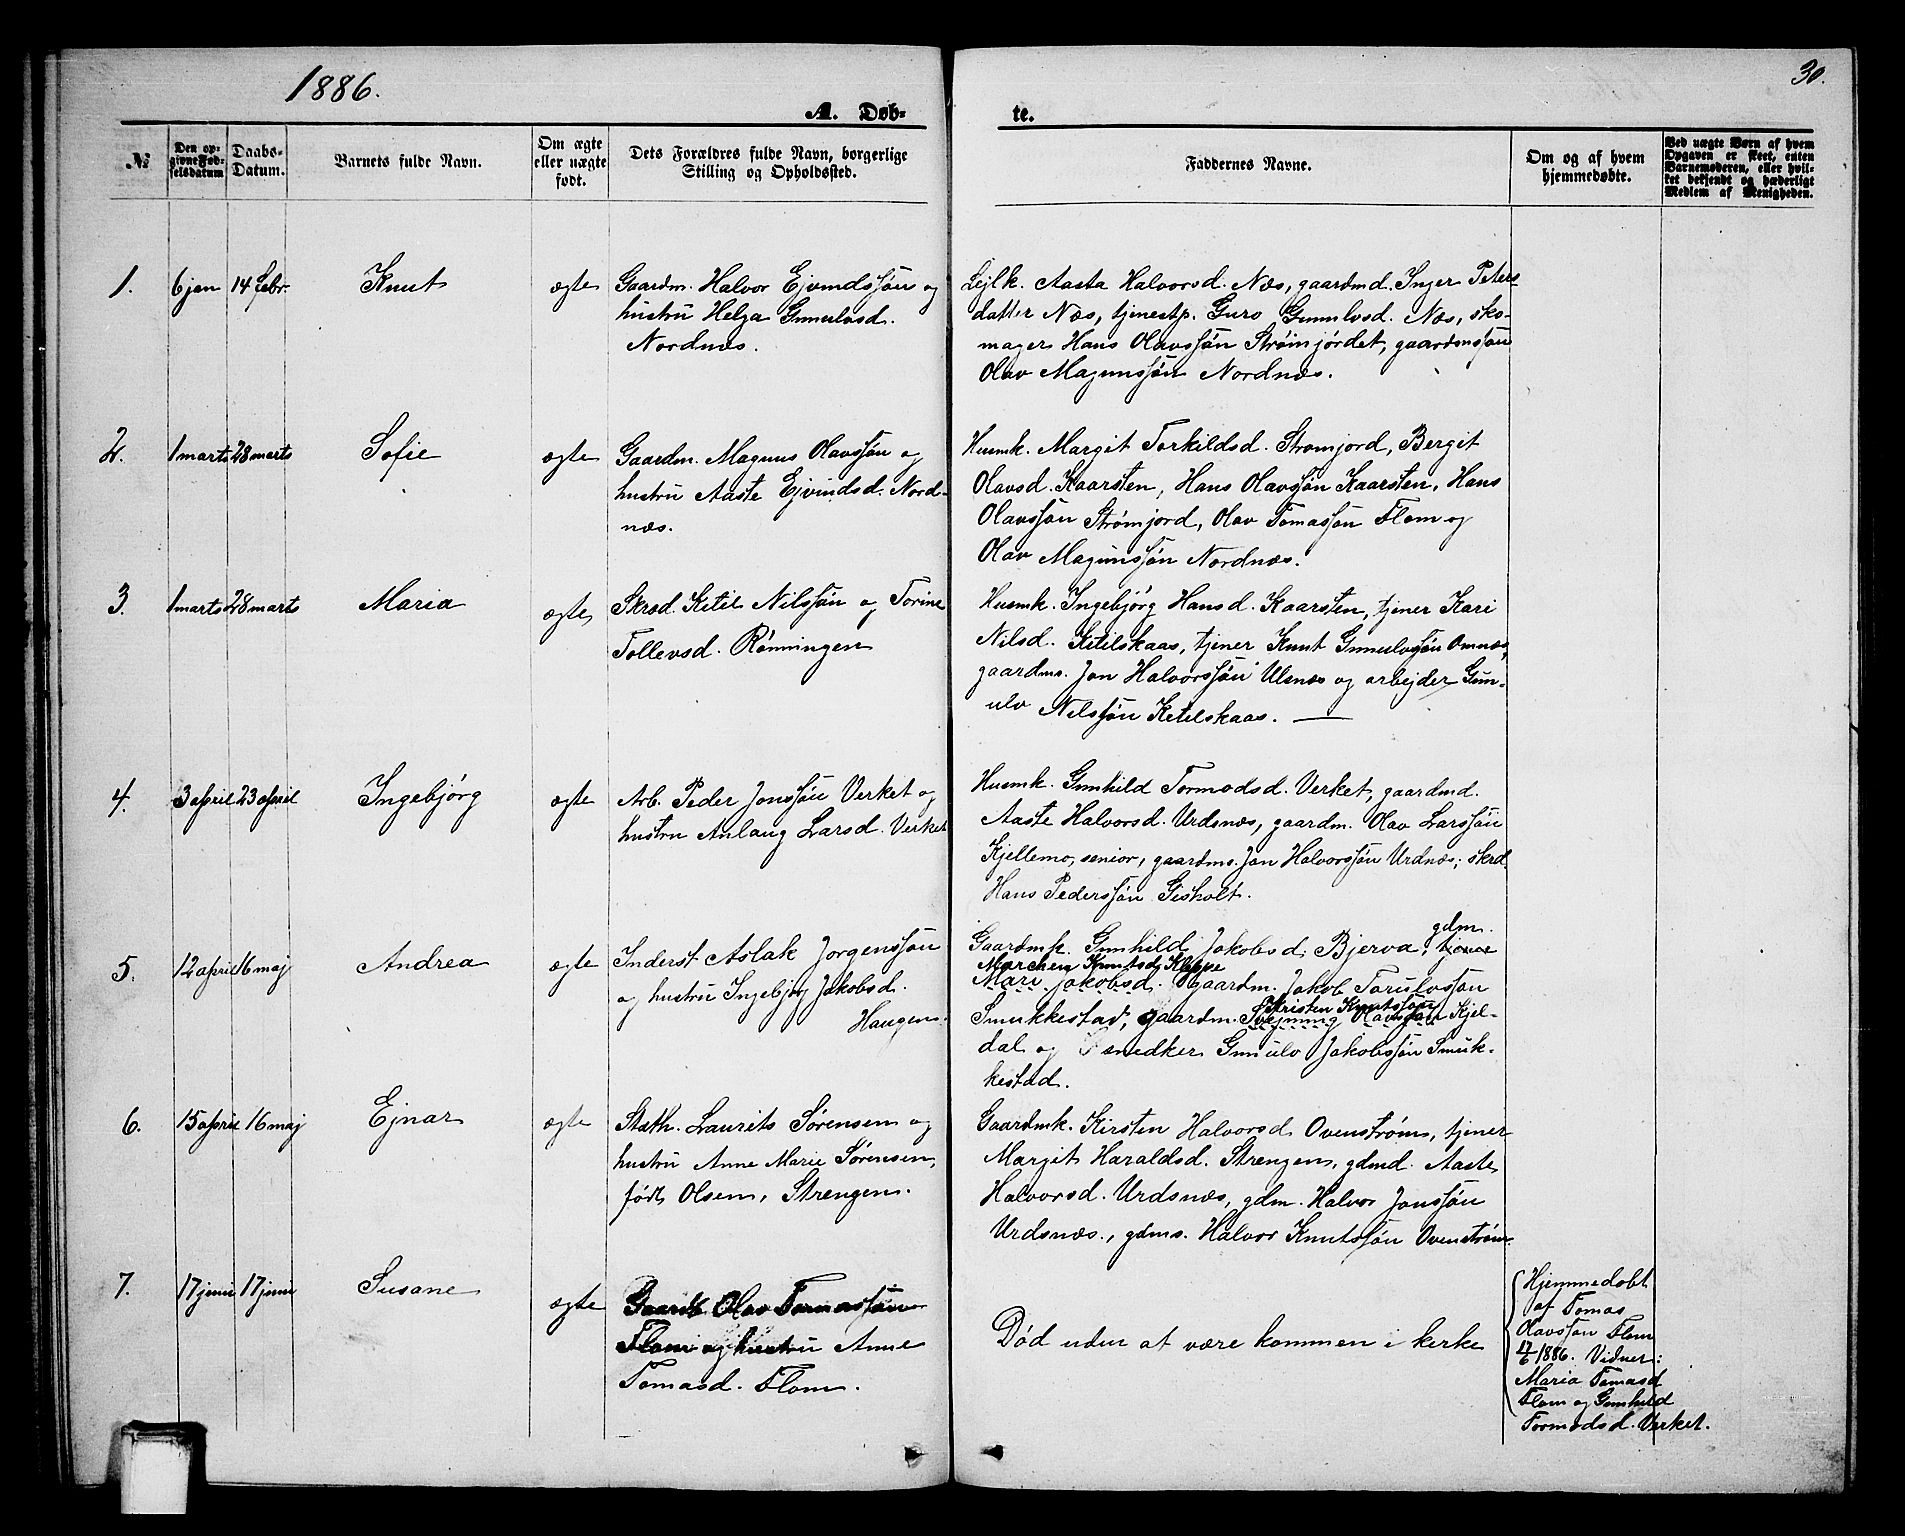 1886.
30.
A. Døb-
te.
№
Den op-
givne Fød-
selsdatum
Daabs-
Datum.
Barnets fulde Navn.
Om ægte
eller uægte
født.
Dets Forældres fulde Navn, borgerlige
Stilling og Opholdssted.
Faddernes Navne.
Om og af hvem
hjemmedøbte.
Ved uægte Børn af hvem
Opgaven er skeet, enten
Barnemoderen, eller hvil-
ket bekjendt og hæderligt
Medlem af Menigheden.
1.
6 jan
14 febr.
Knut
ægte
Gaardm. Halvor Ejvindssøn og
hustru Helga Gunnulvsd.
Nordnæs.
Lejlk. Aasta Halvorsd. Næs, gaardmd. Inger Peters-
datter Næs, tjenestp. Guro Gunnulvsd. Næs, sko-
mager Hans Olavssøn Strømjordet, gaardmssøn
Olav Magunssøn Nordnæs.
2.
1 marts
28 marts
Sofie
ægte
Gaardm. Magnus Olavssøn og
hustru Aaste Ejvindsd. Nord-
næs.
Husmk. Margit Torkildsd. Strømjord, Bergit
Olavsd. Kaarsten, Hans Olavssøn Kaarsten, Hans
Olavssøn Strømjord, Olav Tomassøn Flom og
Olav Magunssøn Nordnæs.
3.
1 marts
28 marts
Maria
ægte
Skræd. Ketil Nilssøn og Torine
Tollevsd. Rønningen
Husmk. Ingebjørg Hansd. Kaarsten, tjener Kari
Nilsd. Ketilskaas, tjener Knut Gunnulvssøn Omnæs,
gaardms. Jon Halvorssøn Ulsnæs og arbejder Gun-
ulv Nilssøn Ketilskaas.
4.
3 april
23 april
Ingebjørg
ægte
Arb. Peder Jonssøn Verket og
hustru Anlaug Larsd. Verket
Husmk. Gunhild Tormodsd. Verket, gaardmd.
Aaste Halvorsd. Urdsnæs, gaardm. Olav Larssøn
Kjellemo, senior, gaardms. Jon Halvorssøn Urdnæs, skrd.
Hans Pederssøn Gisholt.
5.
12 april
16 maj
Andrea
ægte
Inderst Aslak Jørgenssøn
og hustru Ingebjøg Jakobsd.
Haugen.
gdm.
Gaardmk. Gunhild Jakobsd. Bjerva, tjener
Marchen Knutsd. Kleppe
Mari Jakobsd. gaardm. Jakob Torulvssøn
Kristen Knutssøn
Smukkestad, gaardm. Svejning Olavssøn Kjel-
dal og snedker Gunulv Jakobssøn Smuk-
kestad.
6.
15 april
16 maj
Ejnar
ægte
Stath. Laurits Sørensen og
hustru Anne Marie Sørensen,
født Olsen, Strengen.
Gaardmk. Kirsten Halvorsd. Ovenstrøm, tjener
Margit Haraldsd. Strengen, gdmd. Aaste
Halvorsd. Urdsnæs, gdm. Halvor Jonssøn
Urdsnæs, gdms. Halvor Knutssøn Ovenstrøm.
7.
17 juni
17 juni
Susane
ægte
Gaardb. Olav Tomassøn
Flom og hustru Anne
Tomasd. Flom.
Død uden at være kommen i kerke
Hjemmedøbt
af Tomas
Olavssøn Flom
17/6 1886. Vidner:
Maria Tomasd
Flom og Gunhild
Tormodsd. Verket.